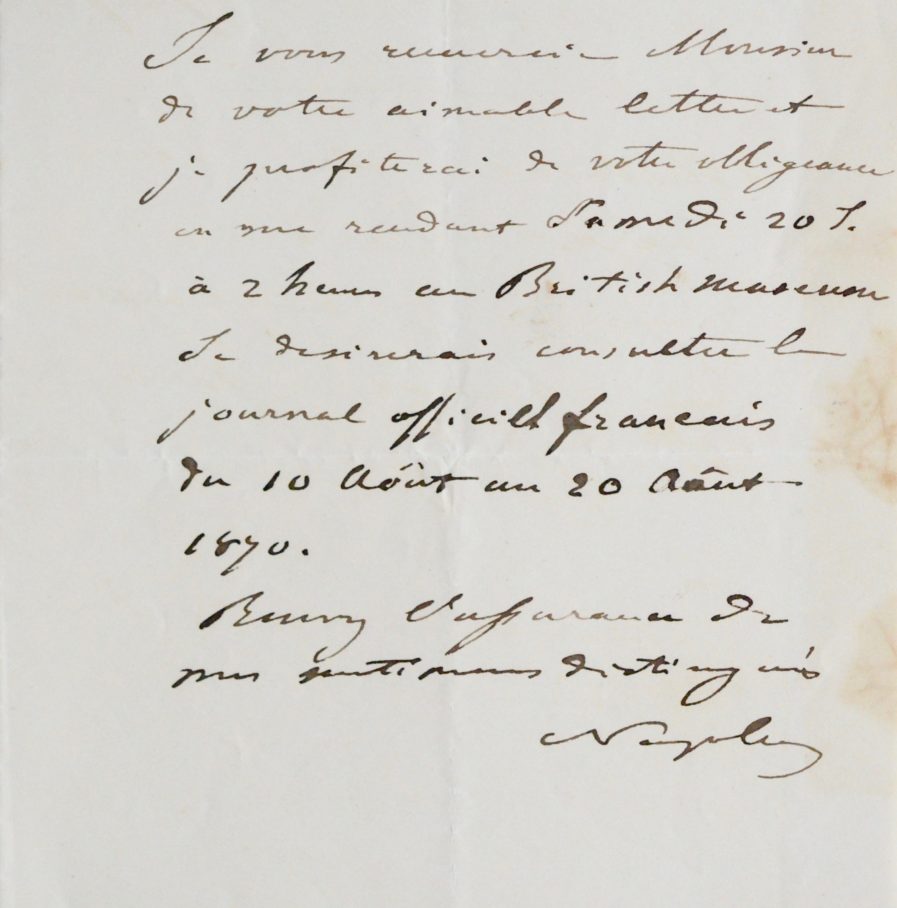 Je vous remercie Monsieur
de votre aimable lettre et
je profiterai de votre obligeance
en me rendant Samedi 20 J.
à 2 heures au British Museum
Je desirerais consulter le
journal officiell francais
du 10 Aôut au 20 Aôut
1870.
Recevez l'assurance de
mes sentimens distingués
Napoléon